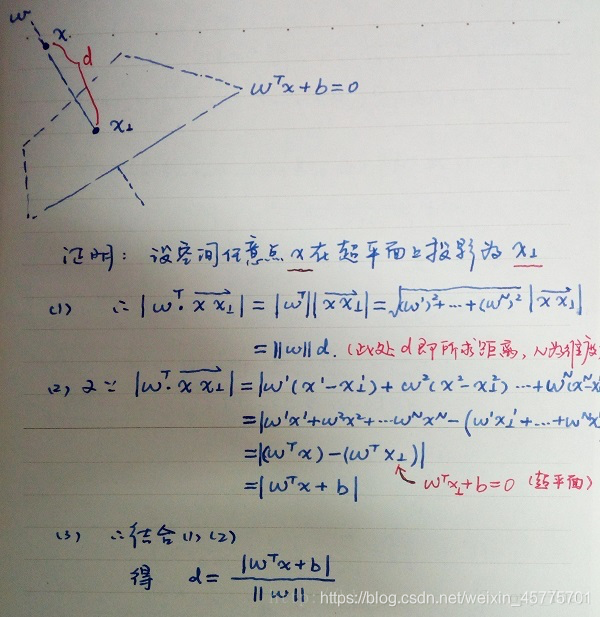 w
x
d
wᵀx+b=0
x⊥
证明: 设空间任意点x在超平面上投影为 x⊥
(1) ∵ |wᵀ·xx⊥| = |wᵀ||xx⊥| = √(w¹)²+…+(wᴺ)² |xx⊥|
= ||w|| d. (此处 d即所求距离, N为维度
(2) 又∵ |wᵀ·xx⊥| = |w¹(x¹-x⊥¹) + w²(x²-x⊥²)…+wᴺ(xᴺ-x
= |w¹x¹+w²x²+…wᴺxᴺ-(w¹x⊥¹+…+wᴺx
= |(wᵀx)-(wᵀx⊥)|
= |wᵀx+b| wᵀx⊥+b=0 (超平面)
(3) ∴结合(1),(2)
得 d= |wᵀx+b| / ||w||
https://blog.csdn.net/weixin_45775701